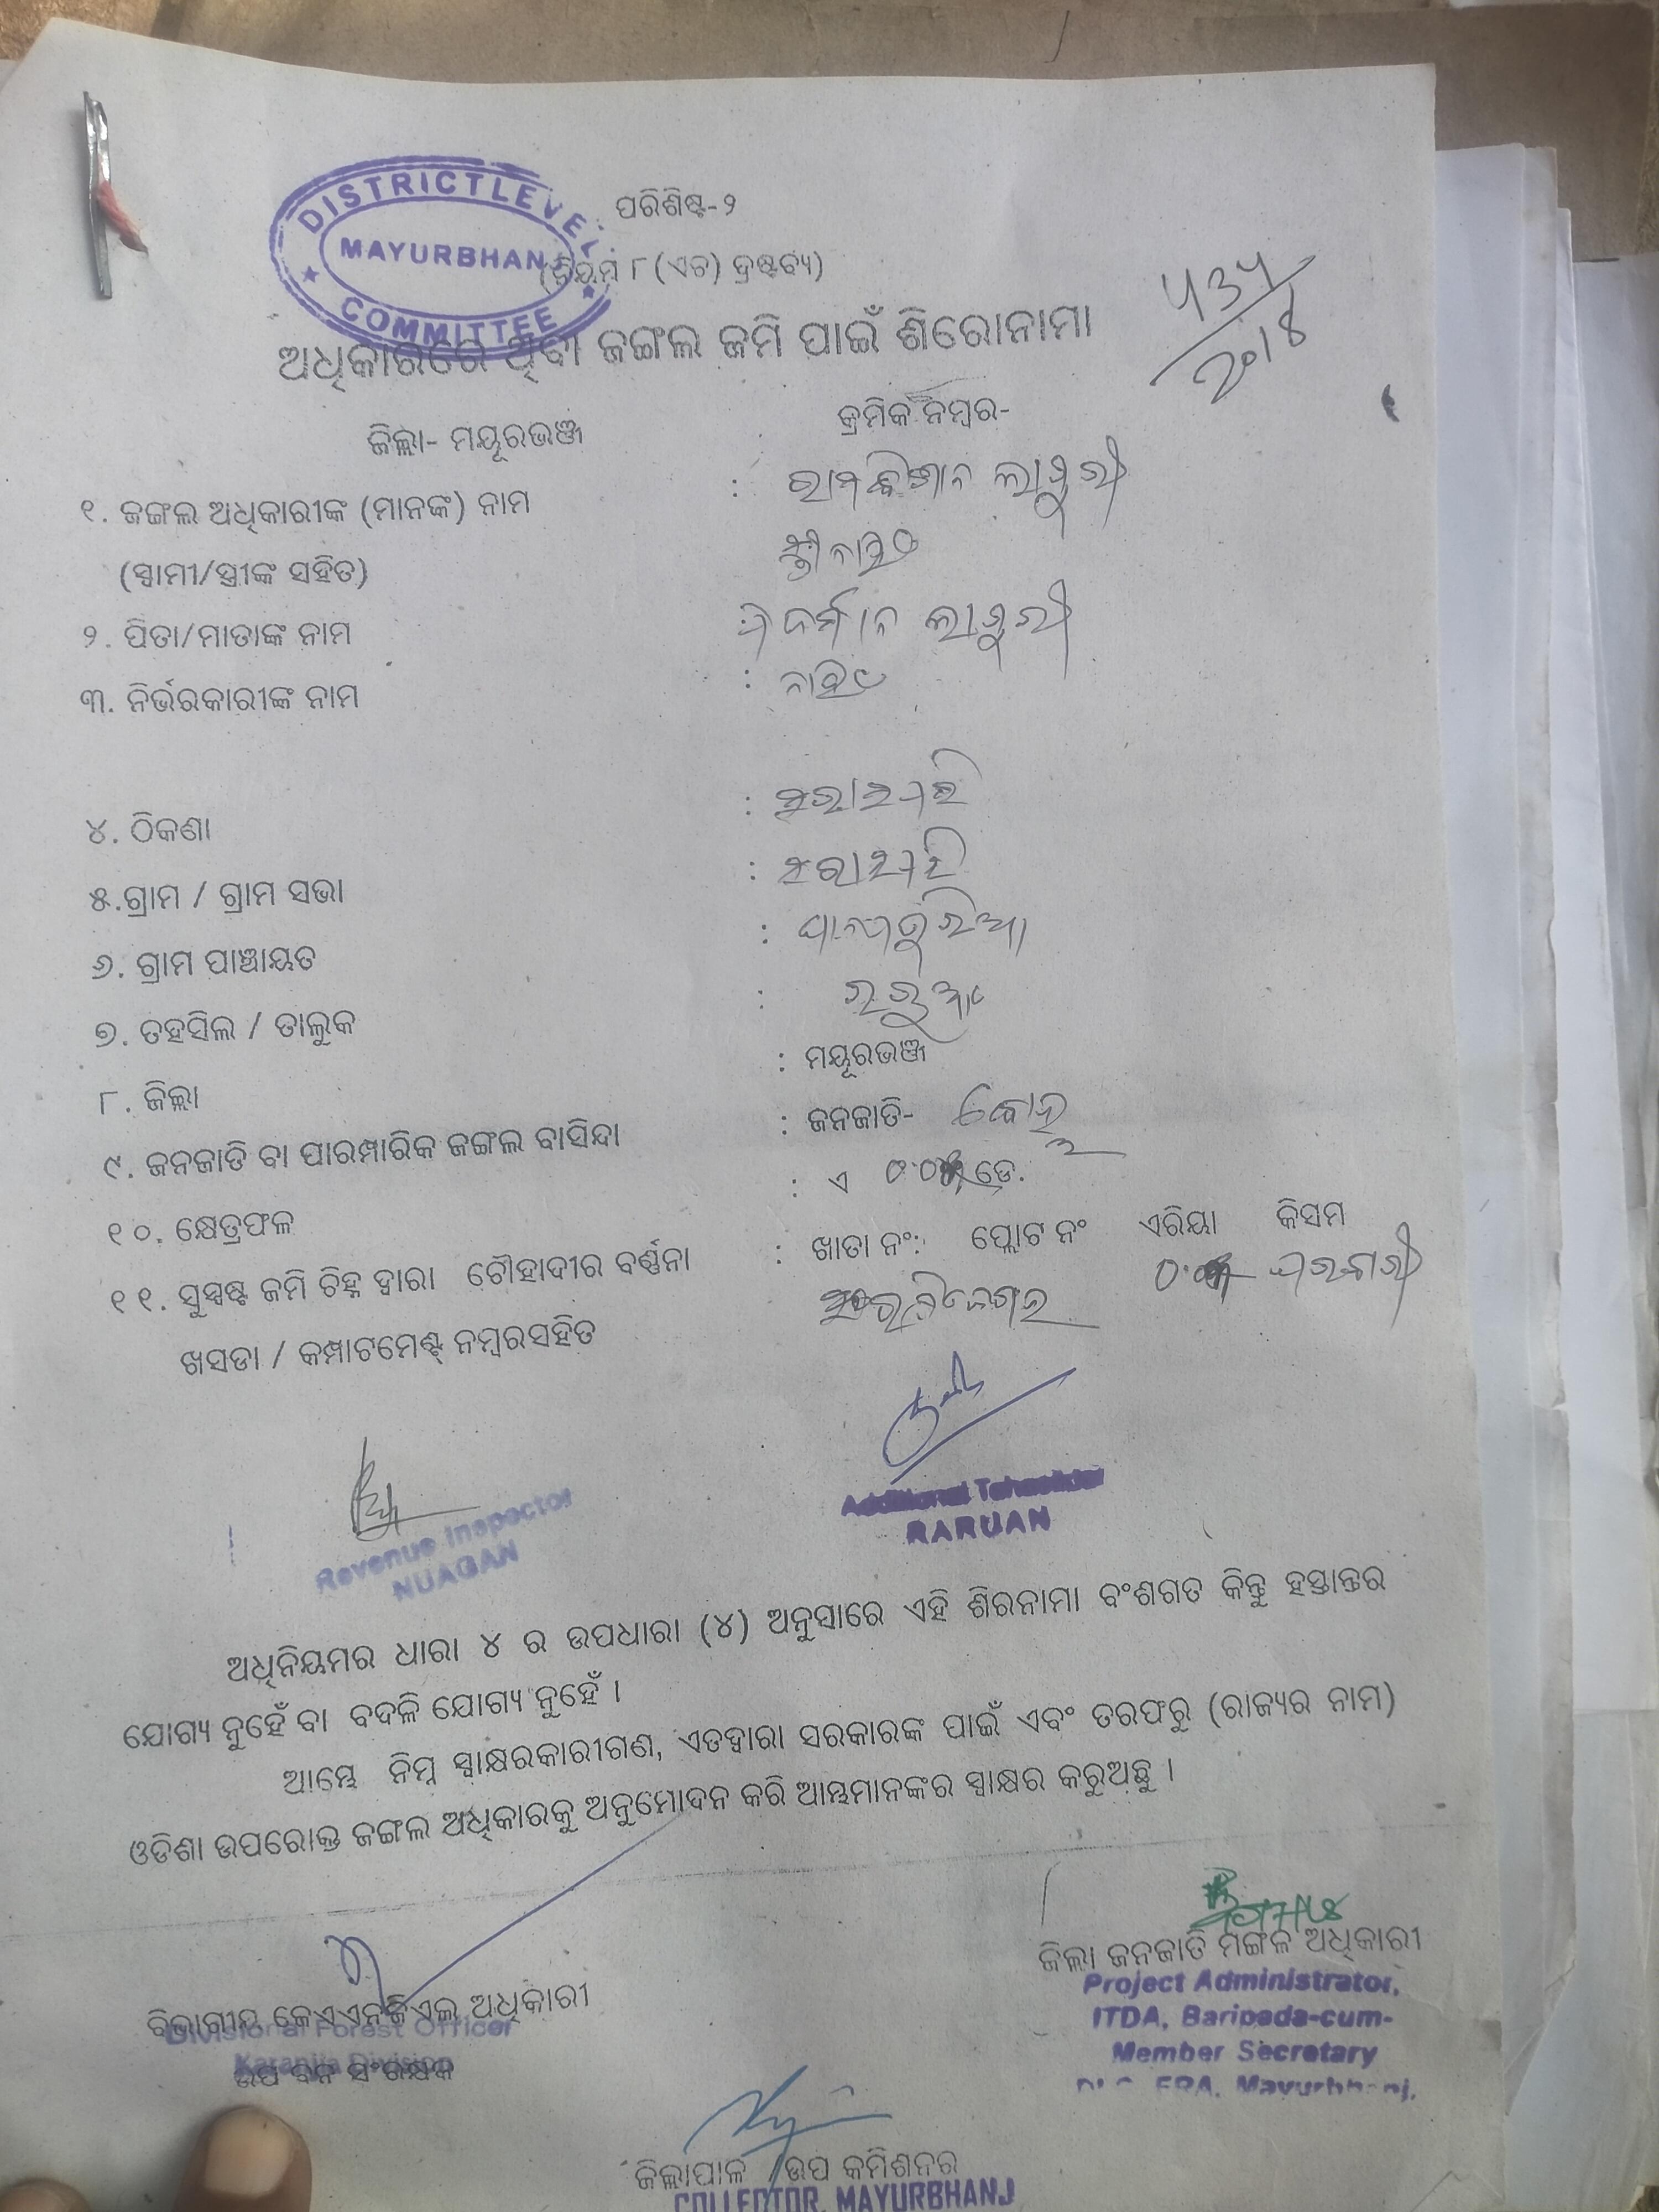 DISTRICT LEVEL
MAYURBHANJ
COMMITTEE
ପରିଶିଷ୍ଟ-୨
(ନିୟମ ୮ (ଏଚ) ଦ୍ରଷ୍ଟବ୍ୟ)
ଅଧିକାରରେ ଥିବା ଜଙ୍ଗଲ ଜମି ପାଇଁ ଶିରୋନାମା
ଜିଲ୍ଲା- ମୟୂରଭଞ୍ଜ
କ୍ରମିକ ନମ୍ବର-
୧. ଜଙ୍ଗଲ ଅଧିକାରୀଙ୍କ (ମାନଙ୍କ) ନାମ : ଲାଗୁରୀ
(ସ୍ୱାମୀ/ସ୍ତ୍ରୀଙ୍କ ସହିତ)
୨. ପିତା/ମାତାଙ୍କ ନାମ : ଲାଗୁରୀ
୩. ନିର୍ଭରକାରୀଙ୍କ ନାମ : ନାହିଁ
୪. ଠିକଣା :
୫.ଗ୍ରାମ / ଗ୍ରାମ ସଭା :
୬. ଗ୍ରାମ ପାଞ୍ଚାୟତ :
୭. ତହସିଲ / ତାଲୁକ : ରରୁଆଁ
୮. ଜିଲ୍ଲା : ମୟୂରଭଞ୍ଜ
୯. ଜନଜାତି ବା ପାରମ୍ପାରିକ ଜଙ୍ଗଲ ବାସିନ୍ଦା : ଜନଜାତି- କୋହ୍ଲ
୧୦. କ୍ଷେତ୍ରଫଳ : ଏ ଡେ.
୧୧. ସୁସ୍ପଷ୍ଟ ଜମି ଚିହ୍ନ ଦ୍ୱାରା ଚୌହାଦୀର ବର୍ଣ୍ଣନା : ଖାତା ନଂ: ପ୍ଲୋଟ ନଂ ଏରିୟା କିସମ
ଖସଡା / କମ୍ପାଟମେଣ୍ଟ ନମ୍ବରସହିତ
Revenue Inspector
NUAGAN
Additional Tahasildar
RARUAN
ଅଧିନିୟମର ଧାରା ୪ ର ଉପଧାରା (୪) ଅନୁସାରେ ଏହି ଶିରନାମା ବଂଶଗତ କିନ୍ତୁ ହସ୍ତାନ୍ତର
ଯୋଗ୍ୟ ନୁହେଁ ବା ବଦଳି ଯୋଗ୍ୟ ନୁହେଁ ।
ଆମ୍ଭେ ନିମ୍ନ ସ୍ୱାକ୍ଷରକାରୀଗଣ, ଏତଦ୍ୱାରା ସରକାରଙ୍କ ପାଇଁ ଏବଂ ତରଫରୁ (ରାଜ୍ୟର ନାମ)
ଓଡିଶା ଉପରୋକ୍ତ ଜଙ୍ଗଲ ଅଧିକାରକୁ ଅନୁମୋଦନ କରି ଆମ୍ଭମାନଙ୍କର ସ୍ୱାକ୍ଷର କରୁଅଛୁ ।
ଜିଲା ଜନଜାତି ମଙ୍ଗଳ ଅଧିକାରୀ
Project Administrator,
ITDA, Baripada-cum-
Member Secretary
DLC, FRA, Mayurbhanj.
ବିଭାଗୀୟ କେଏଏନଜିଏଲ ଅଧିକାରୀ
Divisional Forest Officer
Karanjia Division
ଉପ ବନ ସଂରକ୍ଷକ
ଜିଲ୍ଲାପାଳ /ଉପ କମିଶନର
COLLECTOR, MAYURBHANJ